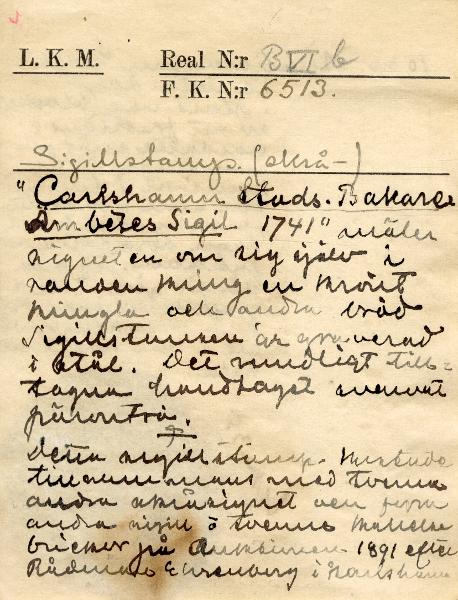 L. K. M. Real N:r BVI b
F. K. N:r 6513.
Sigillstamp. (skrå-)
"Carlshamn Stads. Bakare
Ämbetes Sigil 1741" mäler
signeten om sig själv i
randen kring en krönt
kringla och andra bröd
Sigillstampen är graverad
i stål. Det rundligt till-
tagna handtaget svarvat
päronträ.
Detta sigillstamp.
tillsammans med tvenne
andra skråsignet och fyra
andra sigill å tvenne
brickor på Auktionen 1891 efter
Rådman Ehrenberg i Karlshamn